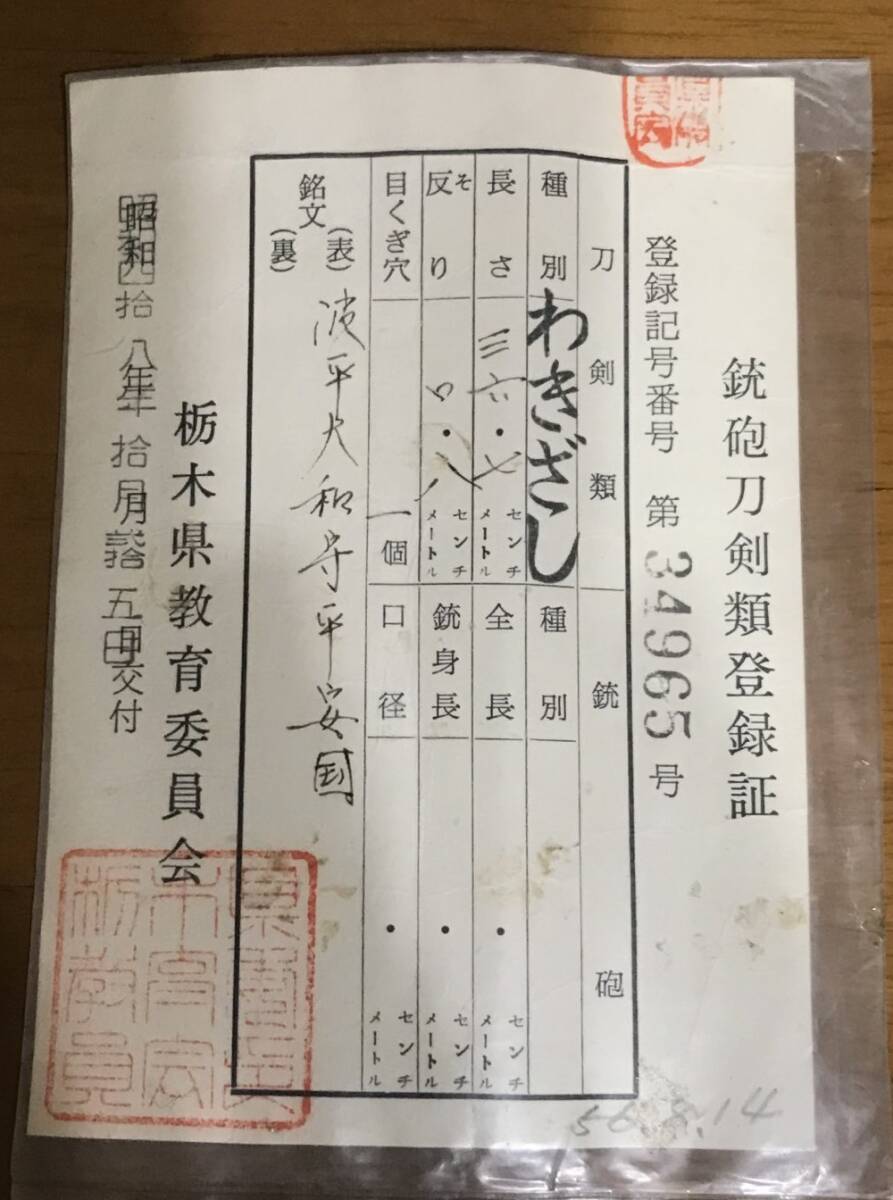 銃砲刀剣類登録証
登録記号番号 第 34965 号
刀剣類
種別 わきざし
長さ 三六・七 センチメートル
そり 反り 〇・八 センチメートル
目くぎ穴 一個
銘文 (表) 波平大和守平安国
(裏)
銃砲
種別
全長 ・ センチメートル
銃身長 ・ センチメートル
口径 ・ センチメートル
栃木県教育委員会
昭和四拾八年拾月弐拾五日交付
56.8.14